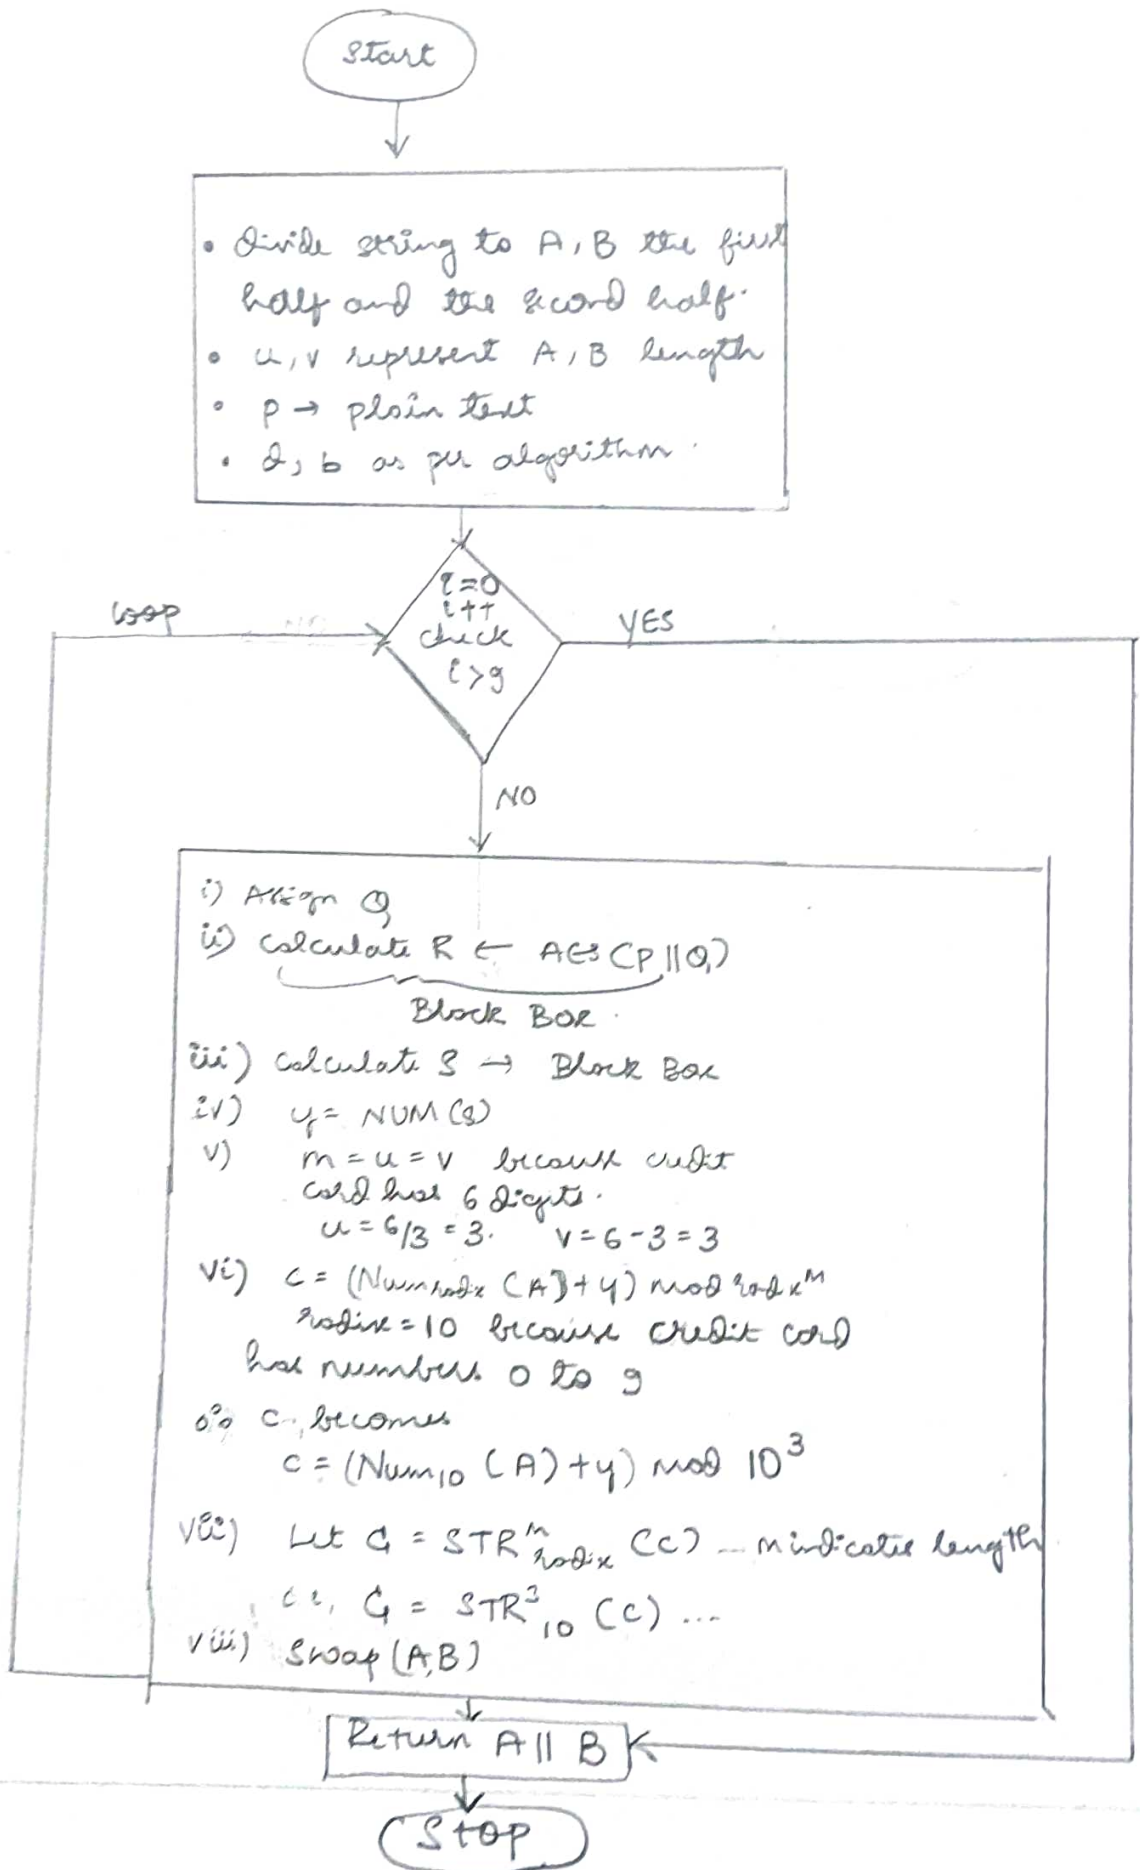 Start
• Divide string to A, B the first
half and the second half.
• u, v represent A, B length
• P → plain text
• d, b as per algorithm.
i=0
i++
check
i>9
loop
NO
YES
NO
i) Assign Q
ii) calculate R ← AES (P || Q)
Block Box.
iii) calculate S → Block Box
iv) y = NUM (S)
v) m = u = v because credit
card has 6 digits.
u = 6/3 = 3. v = 6 - 3 = 3
vi) c = (Num radix (A) + y) mod radix^m
radix = 10 because credit card
has numbers 0 to 9
∴ c becomes
c = (Num₁₀ (A) + y) mod 10³
vii) Let C = STR^m radix (c) ... m indicates length
i.e, C = STR³₁₀ (c) ...
viii) Swap (A,B)
Return A || B
Stop